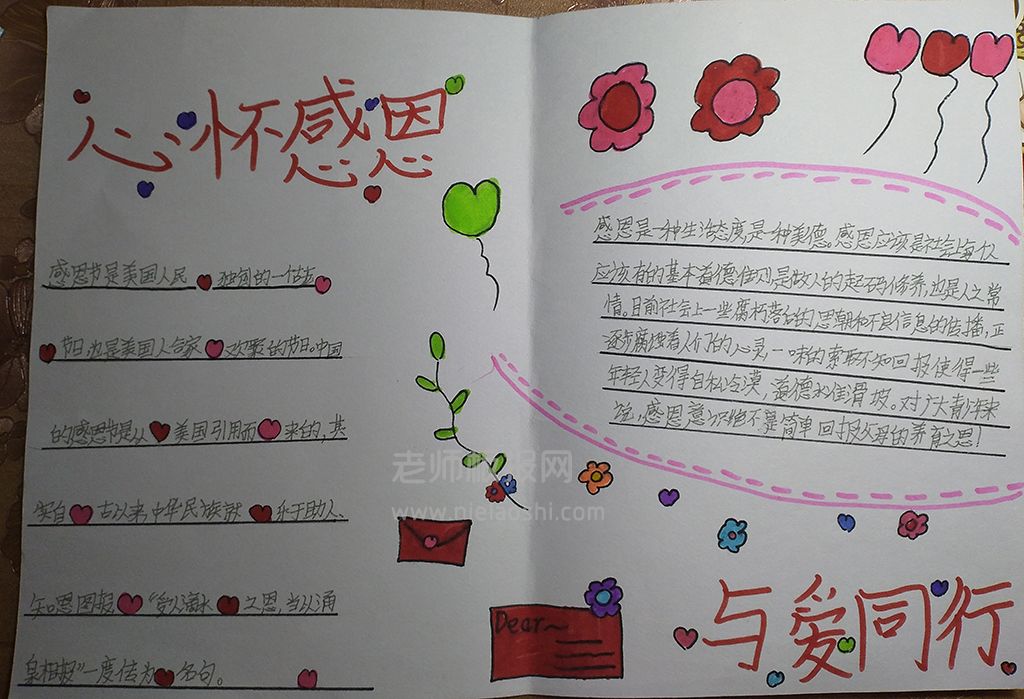 心怀感恩
感恩节是美国人民独创的一个古
节日也是美国人合家欢聚的节日。中国
的感恩节是从美国引用而来的,其
实自古以来,中华民族就乐于助人、
知恩图报“受人滴水之恩,当以涌
泉相报”一度传为名句。
感恩是一种生活态度,是一种美德。感恩应该是社会每个人
应该有的基本道德准则,是做人的起码修养,也是人之常
情。目前社会上一些腐朽落后的思潮和不良信息的传播,正
逐步腐蚀着人们的心灵,一味的索取不知回报使得一些
年轻人变得自私冷漠,道德水准滑坡。对广大青少年来
说,感恩意识绝不是简单回报父母的养育之恩!
老师板报网
www.nielaoshi.com
Dear~
与爱同行